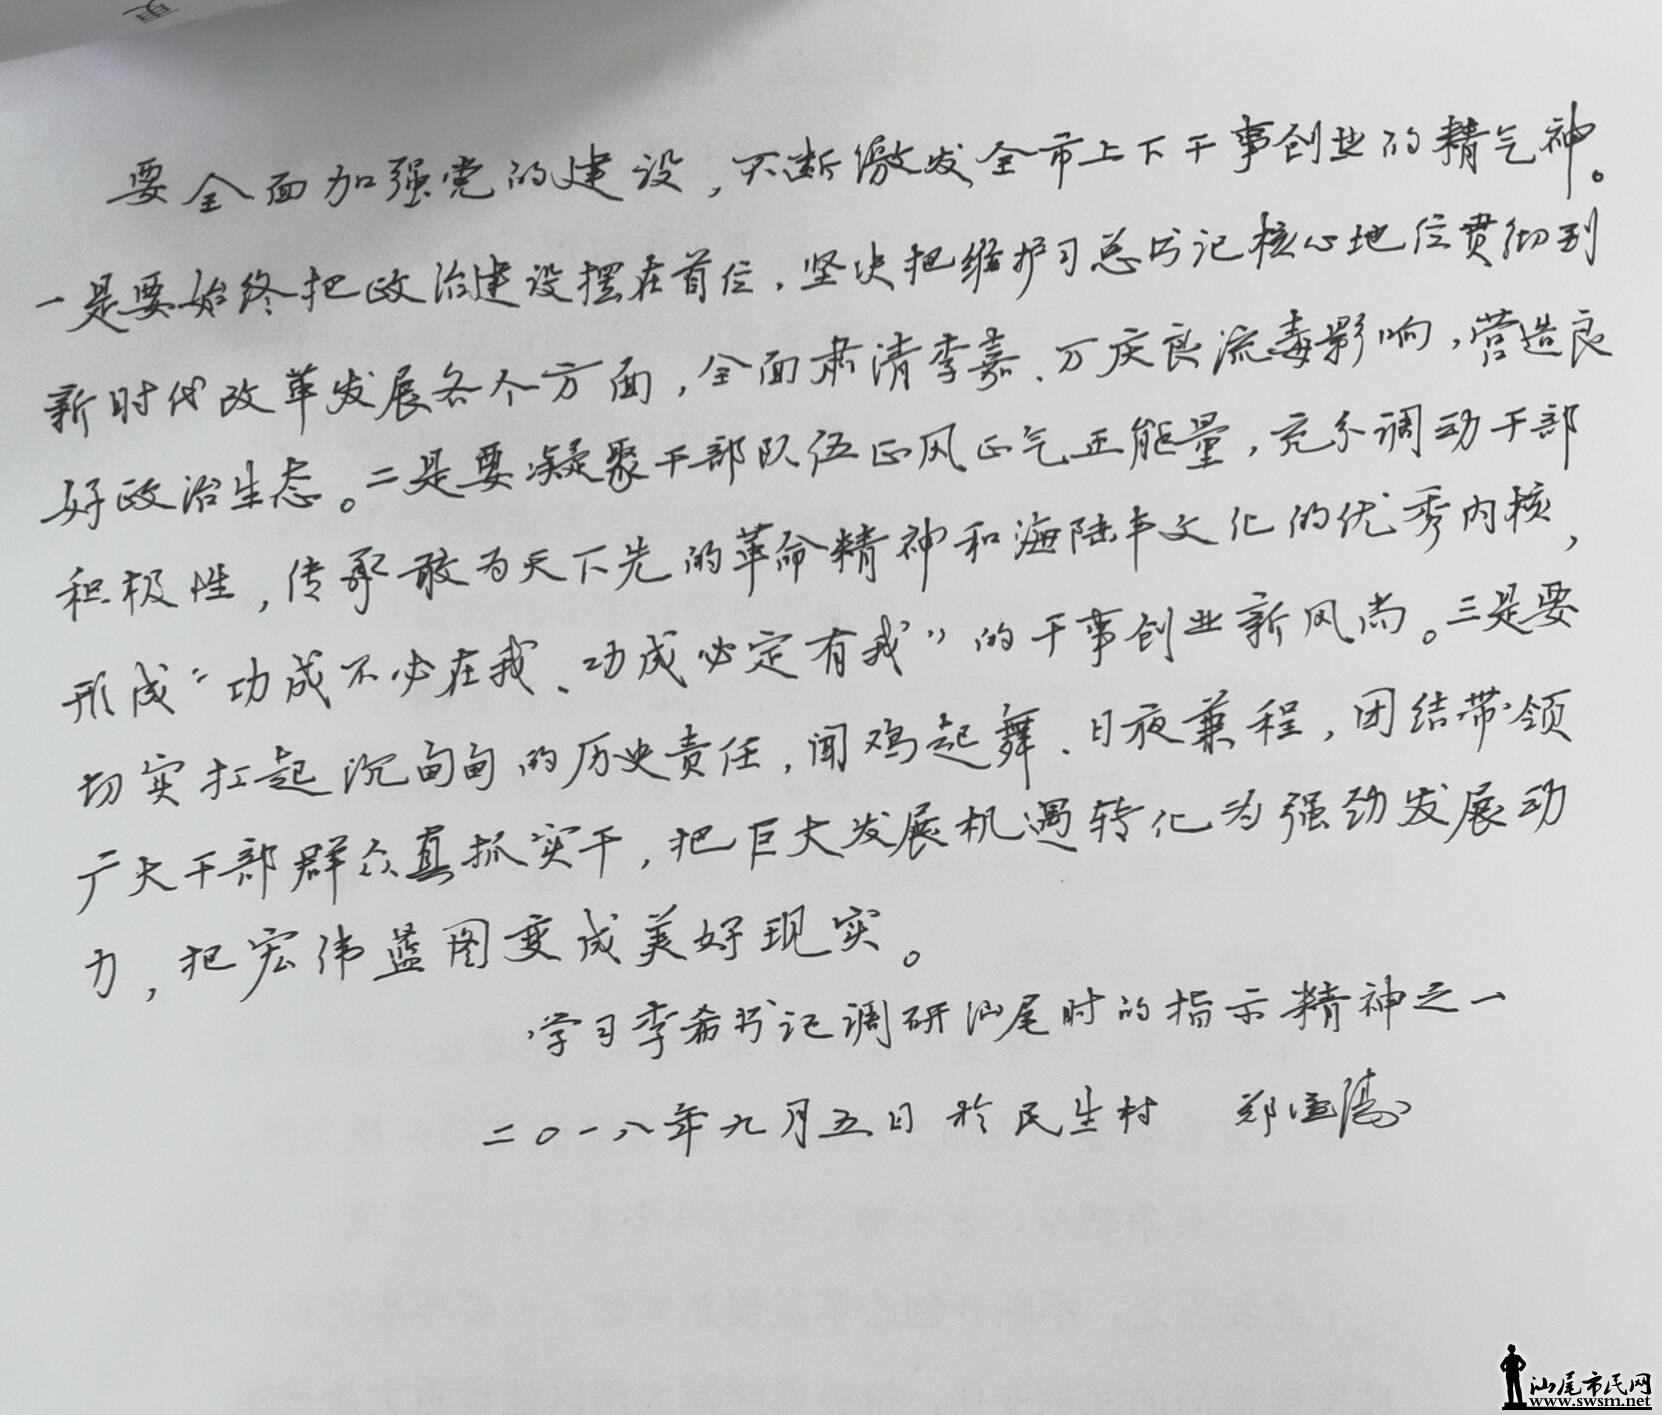 要全面加强党的建设，不断激发全市上下干事创业的精气神。
一是要始终把政治建设摆在首位，坚决把维护习总书记核心地位贯彻到
新时代改革发展各个方面，全面肃清李嘉、万庆良流毒影响，营造良
好政治生态。二是要凝聚干部队伍正风正气正能量，充分调动干部
积极性，传承敢为天下先的革命精神和海陆丰文化的优秀内核，
形成“功成不必在我、功成必定有我”的干事创业新风尚。三是要
切实扛起沉甸甸的历史责任，闻鸡起舞、日夜兼程，团结带领
广大干部群众真抓实干，把巨大发展机遇转化为强劲发展动
力，把宏伟蓝图变成美好现实。
学习李希书记调研汕尾时的指示精神之一
二〇一八年九月五日 于民生村 郑
汕尾市民网
www.swsm.net